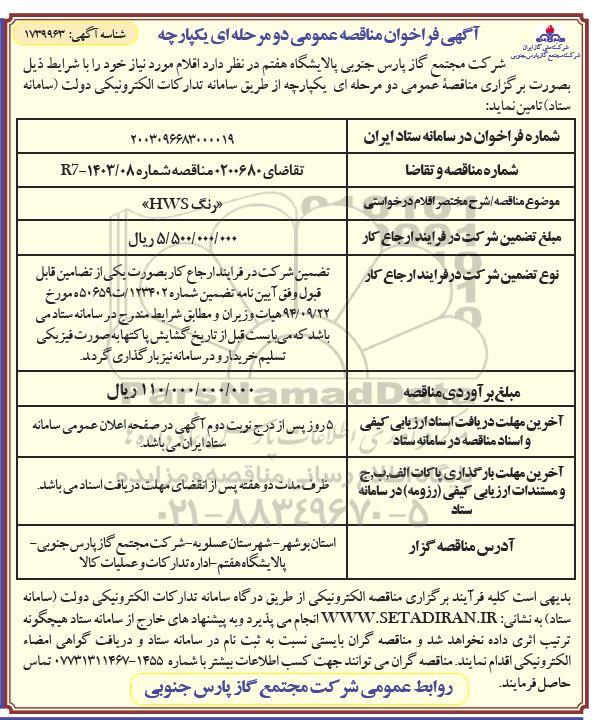 شناسه آگهی: ۱۷۳۹۹۶۳
آگهی فراخوان مناقصه عمومی دو مرحله ای یکپارچه
شرکت ملی گاز ایران
شرکت مجتمع گاز پارس جنوبی
شرکت مجتمع گاز پارس جنوبی پالایشگاه هفتم در نظر دارد اقلام مورد نیاز خود را با شرایط ذیل
بصورت برگزاری مناقصهٔ عمومی دو مرحله ای یکپارچه از طریق سامانه تدارکات الکترونیکی دولت (سامانه
ستاد) تامین نماید:
شماره فراخوان در سامانه ستاد ایران
۲۰۰۳۰۹۶۶۸۳۰۰۰۰۱۹
شماره مناقصه و تقاضا
تقاضای ۰۲۰۰۶۸۰ مناقصه شماره R7-۱۴۰۳/۰۸
موضوع مناقصه/شرح مختصر اقلام درخواستی
«رنگ HWS»
مبلغ تضمین شرکت در فرایند ارجاع کار
۵/۵۰۰/۰۰۰/۰۰۰ ریال
نوع تضمین شرکت در فرایند ارجاع کار
تضمین شرکت در فرایند ارجاع کار بصورت یکی از تضامین قابل
قبول وفق آیین نامه تضمین شماره ۱۲۳۴۰۲/ت۵۰۶۵۹ه مورخ
۹۴/۰۹/۲۲ هیات وزیران و مطابق شرایط مندرج در سامانه ستاد می
باشد که می بایست قبل از تاریخ گشایش پاکتها به صورت فیزیکی
تسلیم خریدار و در سامانه نیز بارگذاری گردد.
مبلغ برآوردی مناقصه
۱۱۰/۰۰۰/۰۰۰/۰۰۰ ریال
آخرین مهلت دریافت اسناد ارزیابی کیفی
و اسناد مناقصه در سامانه ستاد
۵ روز پس از درج نوبت دوم آگهی در صفحه اعلان عمومی سامانه
ستاد ایران می باشد.
آخرین مهلت بارگذاری پاکات الف,ب,ج
و مستندات ارزیابی کیفی (رزومه) در سامانه
ستاد
ظرف مدت دو هفته پس از انقضای مهلت دریافت اسناد می باشد.
آدرس مناقصه گزار
استان بوشهر- شهرستان عسلویه- شرکت مجتمع گاز پارس جنوبی-
پالایشگاه هفتم- اداره تدارکات و عملیات کالا
ParsNamadData
پایگاه اطلاع رسانی مناقصه و مزایده
۰۲۱-۸۸۳۴۹۶۷۰-۵
بدیهی است کلیه فرآیند برگزاری مناقصه الکترونیکی از طریق درگاه سامانه تدارکات الکترونیکی دولت (سامانه
ستاد) به نشانی: WWW.SETADIRAN.IR انجام می پذیرد و به پیشنهاد های خارج از سامانه ستاد هیچگونه
ترتیب اثری داده نخواهد شد و مناقصه گران بایستی نسبت به ثبت نام در سامانه ستاد و دریافت گواهی امضاء
الکترونیکی اقدام نمایند. مناقصه گران می توانند جهت کسب اطلاعات بیشتر با شماره ۱۴۵۵-۰۷۷۳۱۳۱۱۴۶۷ تماس
حاصل فرمایند.
روابط عمومی شرکت مجتمع گاز پارس جنوبی